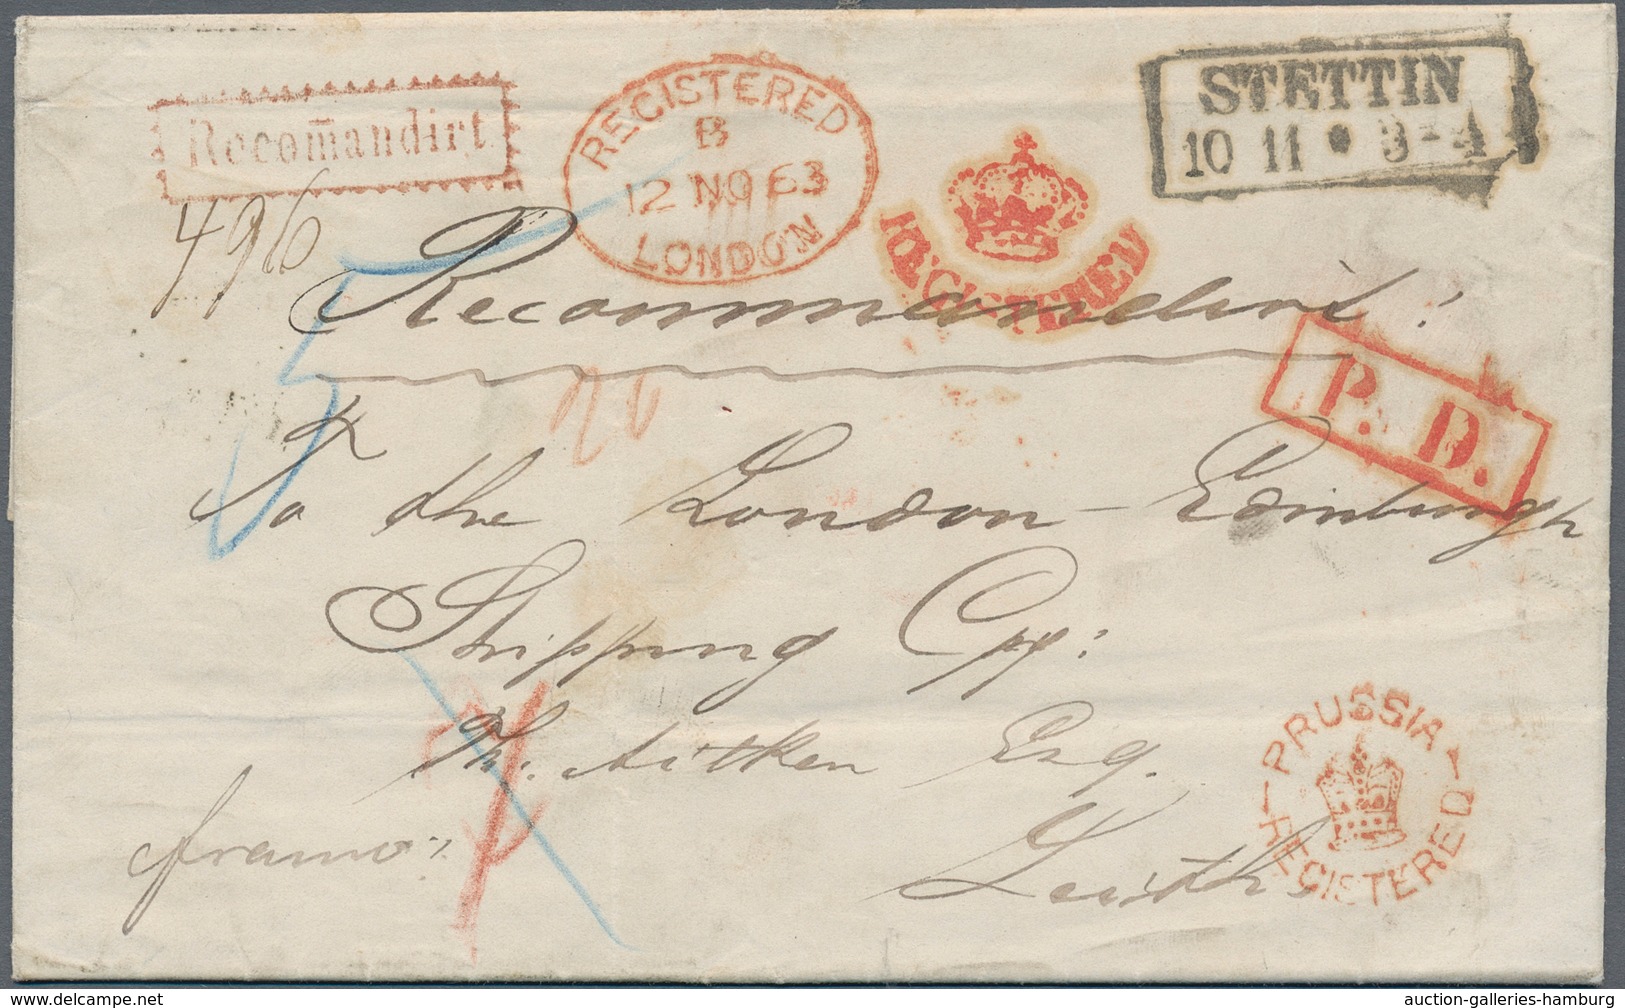 Recom̅andirt
REGISTERED
B
12 NO 63
LONDON
REGISTERED
STETTIN
10 11 • 3-4
496
Recommandirt!
P. D.
To the London-Edinburgh
Shipping Cpy:
Th: Aitken Esq.
Leith
franco:
PRUSSIA
REGISTERED
www.delcampe.net
auction-galleries-hamburg